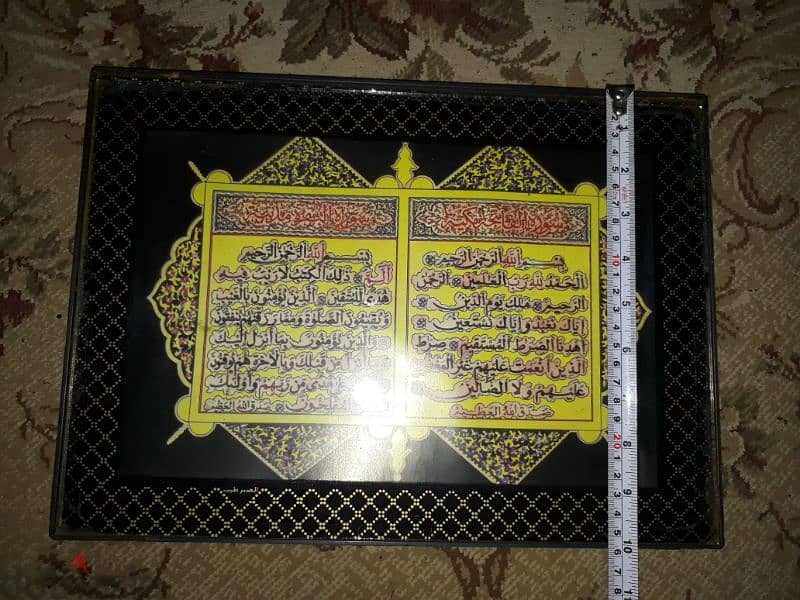 سورة الفاتحة مكية
بسم الله الرحمن الرحيم
الحمد لله رب العلمين الرحمن
الرحيم ملك يوم الدين
اياك نعبد واياك نستعين
اهدنا الصراط المستقيم صراط
الذين انعمت عليهم غير
عليهم ولا الضالين
صدق الله العظيم
سورة البقرة مدنية
بسم الله الرحمن الرحيم
الم ذلك الكتب لا ريب فيه
هدى للمتقين الذين يؤمنون بالغيب
ويقيمون الصلوة ومما رزقنهم ينفقون
والذين يؤمنون بما انزل اليك
انزل من قبلك وبالاخرة هم يوقنون
هدى من ربهم واولئك
صدق الله العظيم
2 3 4 5 6 7 8 9 10 1 2 3 4 5 6 7 8 9 20 1 2 3 4 5 6 7 8
2 3 5 6 8 9 10